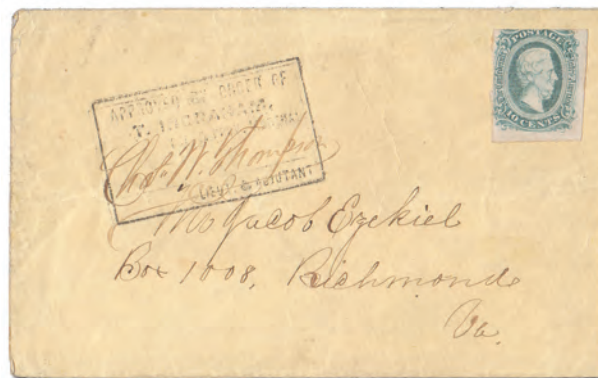 POSTAGE
TEN CENTS
APPROVED BY ORDER OF
T. INGRAHAM,
Chas. W. Thompson
LIEUT. & ADJUTANT
Mr Jacob Ezekiel
Box 1008, Richmond
Va.